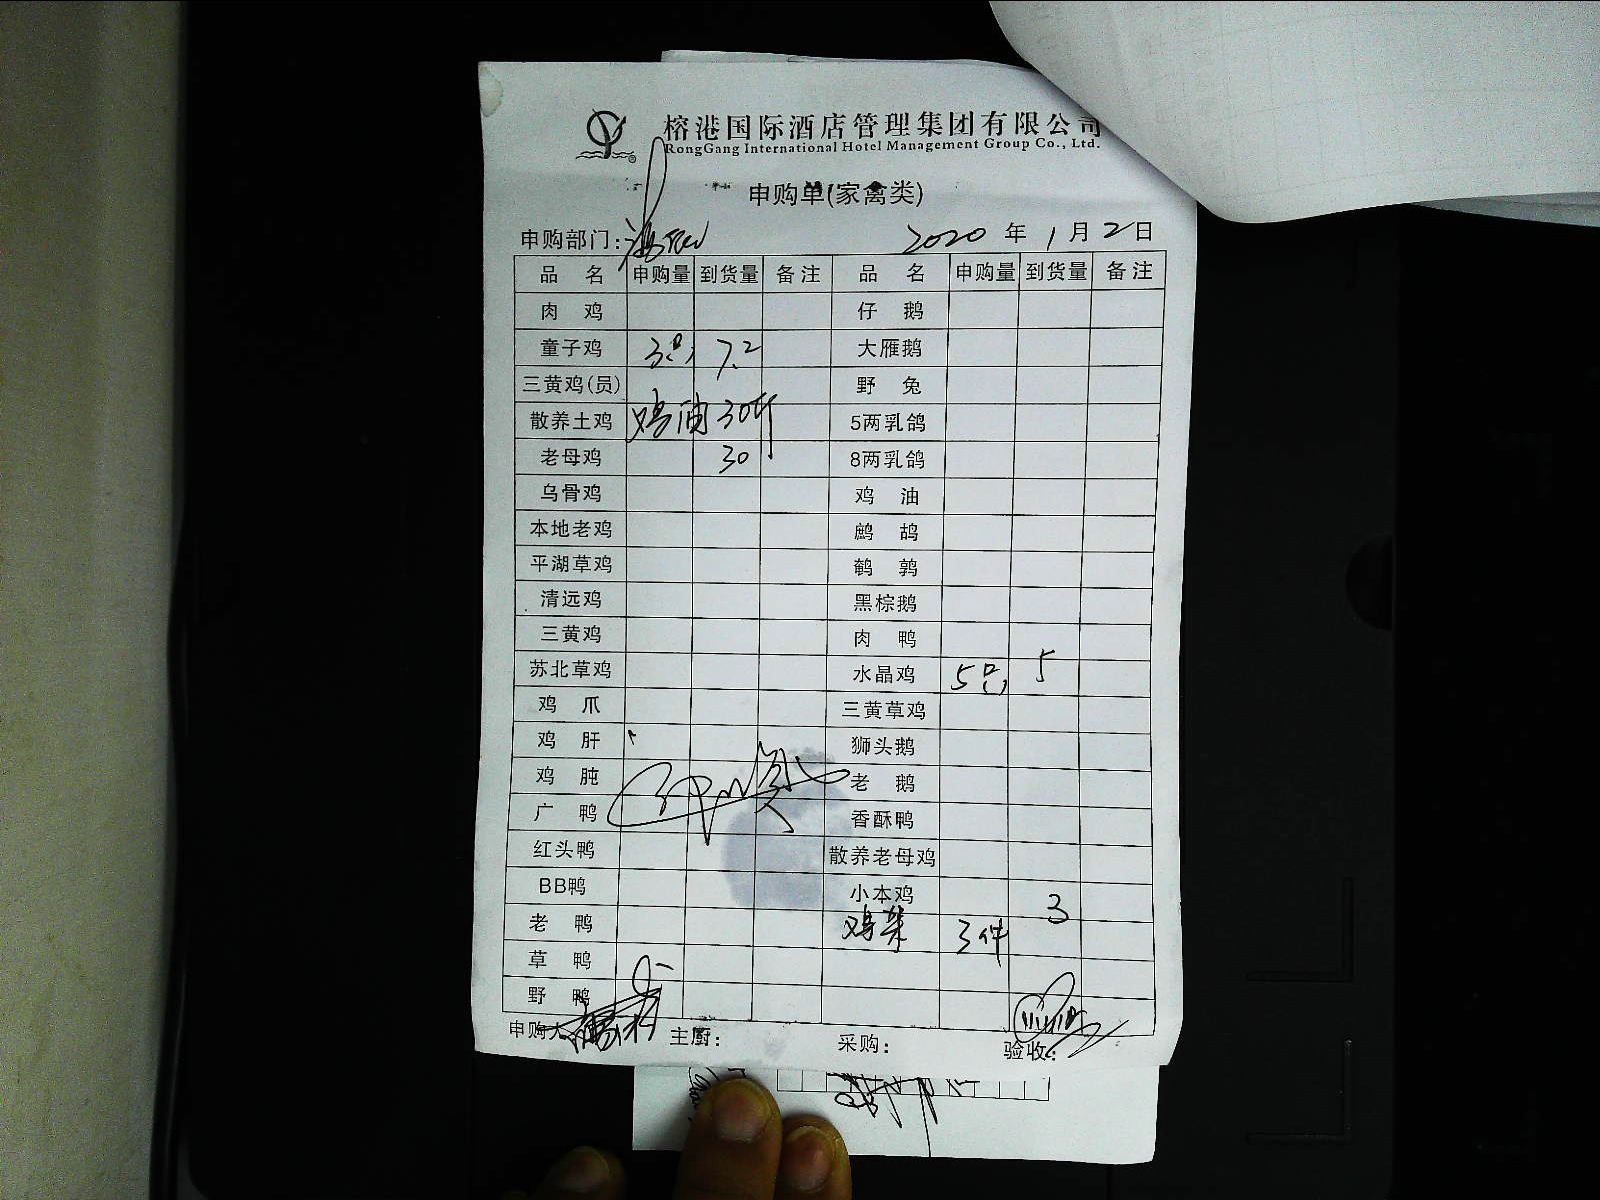 榕港国际酒店管理集团有限公司
RongGang International Hotel Management Group Co., Ltd.
申购单(家禽类)
申购部门: 2020 年 1 月 2 日
品 名 申购量 到货量 备注 品 名 申购量 到货量 备注
肉 鸡 仔 鹅
童子鸡 3只 7.2 大雁鹅
三黄鸡(员) 野 兔
散养土鸡 鸡油 30斤 5两乳鸽
老母鸡 30 8两乳鸽
乌骨鸡 鸡 油
本地老鸡 鹧 鸪
平湖草鸡 鹌 鹑
清远鸡 黑棕鹅
三黄鸡 肉 鸭
苏北草鸡 水晶鸡 5只 5
鸡 爪 三黄草鸡
鸡 肝 狮头鹅
鸡 肫 老 鹅
广 鸭 香酥鸭
红头鸭 散养老母鸡
BB鸭 小本鸡
老 鸭 鸡架 3件 3
草 鸭
野 鸭
申购人 主厨: 采购: 验收: